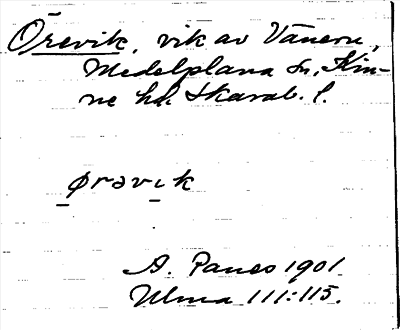 Örevik, vik av Vänern,
Medelplana sn, Kin-
ne hd Skarab. l.
ørəvik
A. Paues 1901
Ulma 111:115.